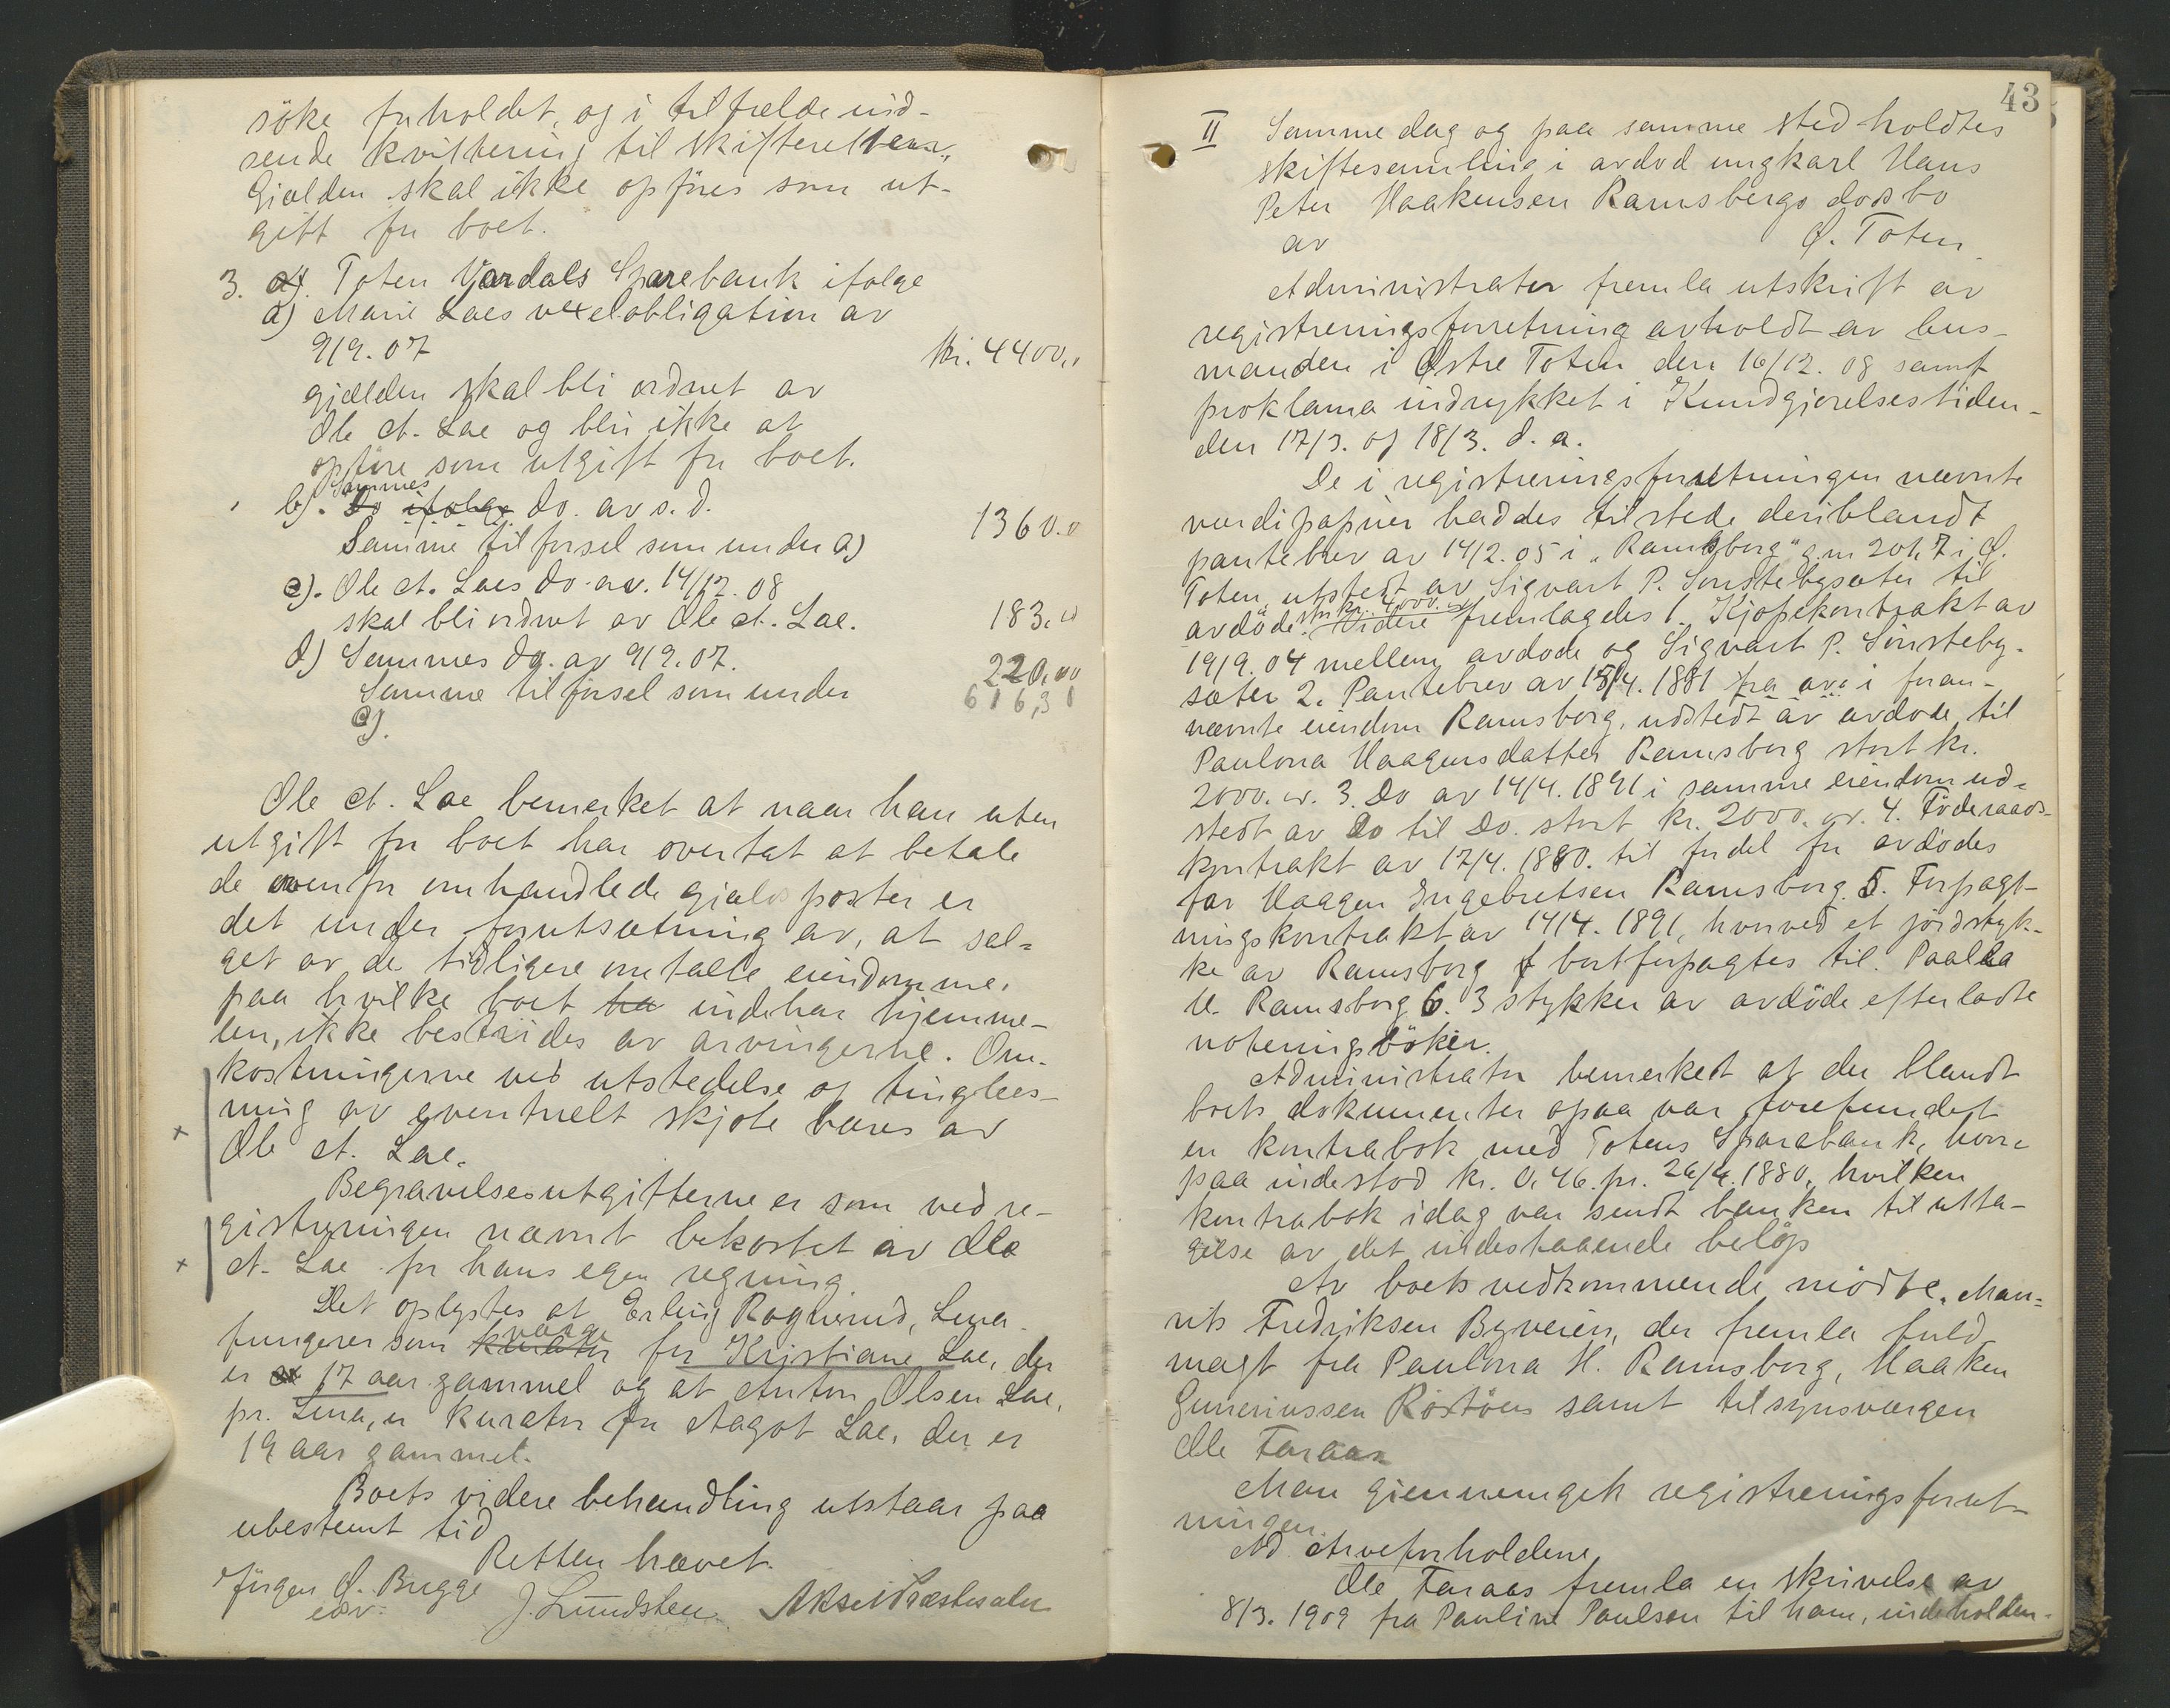 söke forholdet, og i tilfælde ind-
sende kvittering til skifteretten.
Gjælden skal ikke opföres som ut-
gift for boet.
3. a). Toten Vardals Sparebank ifølge
a) Marie Laes vexelobligation av
9/9. 07 kr. 4400,,
gjælden skal bli ordnet av
Ole A. Lae og blir ikke at
opføre som utgift for boet.
Sammes
b). Do ifølge do. av s. d. 1360.0
Samme tilførsel som under a)
c). Ole A. Laes do. av. 14/12. 08
skal bli ordnet av Ole A. Lae. 183,00
d) Sammes do. av 9/9. 07. 220,00
Samme tilførsel som under 616,31
c).
Ole A. Lae bemerket at naar han uten
utgift for boet har overtat at betale
de ovenfor omhandlede gjælds poster er
det under forutsætning av, at sal-
get av de tidligere omtalte eiendomme,
paa hvilke boet ha indehar hjemme-
len, ikke bestrides av arvingerne. Om-
kostningerne ved utstedelse og tinglæs-
ning av eventuelt skjøte bæres av
Ole A. Lae.
Begravelsesutgifterne er som ved re-
gistreringen nævnt bekostet av Ole
A. Lae for hans egen regning
Det oplystes at Erling Roglierud, Lena
værge
fungerer som kurator for Kristiane Lae, der
er 17 aar gammel og at Anton Olsen Lae,
pr. Lena, er kurator for Aagot Lae, der er
19 aar gammel.
Boets videre behandling utstaar paa
ubestemt tid
Retten hævet.
Jörgen Ø. Bugge J. Lundsten Aksel Præstesæter
edv.
43
II Samme dag og paa samme sted holdtes
skiftesamling i avdød ungkarl Hans
Peter Haakensen Ramsbergs dødsbo
av Ø. Toten
Administrator fremla utskrift av
registreringsforretning avholdt av lens-
manden i Østre Toten den 16/12. 08 samt
proklama indrykket i Kundgjørelsestiden-
den 17/3. og 18/3. d. a.
De i registreringsforretningen nævnte
værdipapirer haddes tilstede deriblandt
pantebrev av 14/2. 05 i „Ramsberg" g.m 201, 7 i Ø.
Toten, utstedt av Sigvart P. Sønstebysæter til
stor kr. 4000.00
avdöde. Videre fremlagdes 1. Kjøpekontrakt av
19/9. 04 mellem avdøde og Sigvart P. Sønsteby-
sæter 2. Pantebrev av 15/4. 1881 fra avd i foran-
nævnte eiendom Ramsberg, udstedt av avdøde til
Paulona Haagensdatter Ramsberg stort kr.
2000. 00. 3. Do av 14/4. 1891 i samme eiendom ud-
stedt av Do til Do. stort kr. 2000. 00. 4. Föderaads-
kontrakt av 17/4. 1880. til fordel for avdødes
far Haagen Ingebretsen Ramsberg. 5. Forpagt-
ningskontrakt av 14/4. 1891, hvorved et jordstyk-
ke av Ramsberg f bortforpagtes til Paulona
H. Ramsberg 6. 3 stykker av avdöde efterladte
noteringsböker.
Administrator bemerket at der blandt
boets dokumenter ogsaa var forefundet
en kontrabok med Totens Sparebank, hvor-
paa indestod kr. 0,46. pr. 26/4. 1880, hvilken
kontrabok idag var sendt banken til utta-
gelse av det indestaaende beløp
Av boets vedkommende mødte. Mau-
rits Fredriksen Byveien, der fremla fuld-
magt fra Paulona H. Ramsberg, Haaken
Gunneriussen Röstöen samt tilsynsværgen
Ole Faraas
Man gjennemgik registreringsforret-
ningen.
Ad Arveforholdene
Ole Faraas fremla en skrivelse av
8/3. 1909 fra Pauline Paulsen til ham, indeholden-